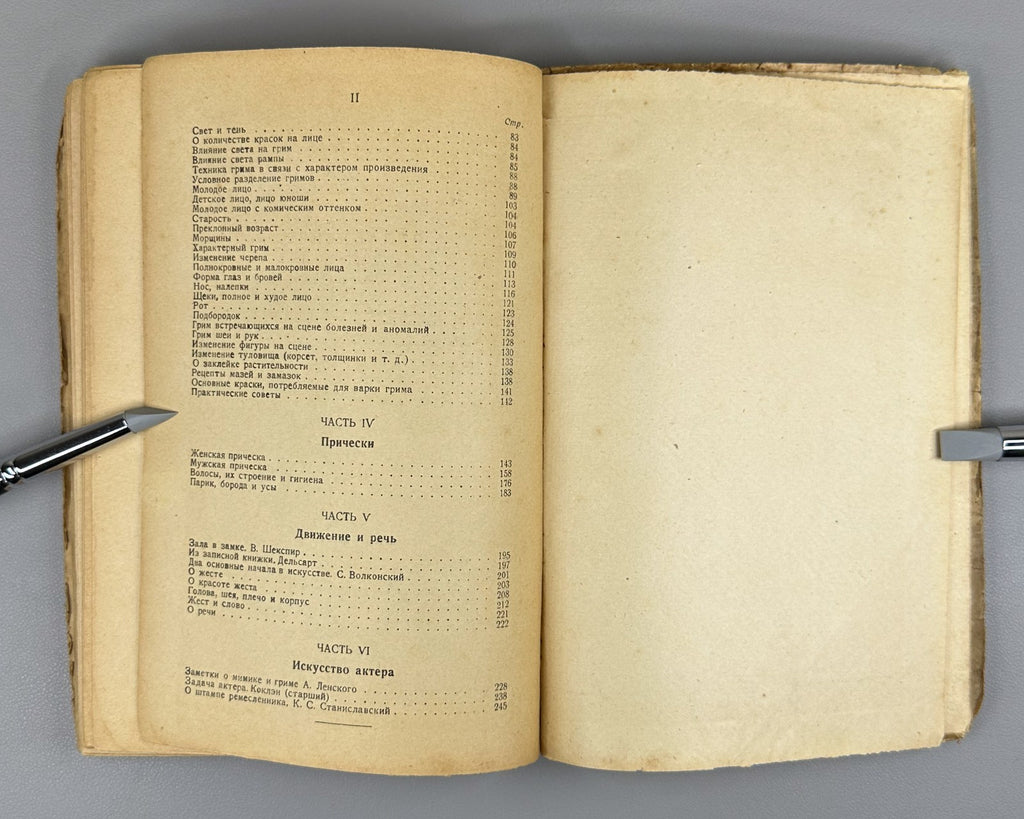 II
Стр.
Свет и тень . . . 83
О количестве красок на лице . . . 84
Влияние света на грим . . . 84
Влияние света рампы . . . 85
Техника грима в связи с характером произведения . . . 88
Условное разделение гримов . . . 88
Молодое лицо . . . 89
Детское лицо, лицо юноши . . . 103
Молодое лицо с комическим оттенком . . . 104
Старость . . . 104
Преклонный возраст . . . 106
Морщины . . . 107
Характерный грим . . . 109
Изменение черепа . . . 110
Полнокровные и малокровные лица . . . 111
Форма глаз и бровей . . . 113
Нос, налепки . . . 116
Щеки, полное и худое лицо . . . 121
Рот . . . 123
Подбородок . . . 124
Грим встречающихся на сцене болезней и аномалий . . . 125
Грим шеи и рук . . . 128
Изменение фигуры на сцене . . . 130
Изменение туловища (корсет, толщинки и т. д.) . . . 133
О заклейке растительности . . . 138
Рецепты мазей и замазок . . . 138
Основные краски, потребляемые для варки грима . . . 141
Практические советы . . . 142
ЧАСТЬ IV
Прически
Женская прическа . . . 143
Мужская прическа . . . 158
Волосы, их строение и гигиена . . . 176
Парик, борода и усы . . . 183
ЧАСТЬ V
Движение и речь
Зала в замке. В. Шекспир . . . 195
Из записной книжки. Дельсарт . . . 197
Два основные начала в искусстве. С. Волконский . . . 201
О жесте . . . 203
О красоте жеста . . . 208
Голова, шея, плечо и корпус . . . 212
Жест и слово . . . 221
О речи . . . 222
ЧАСТЬ VI
Искусство актера
Заметки о мимике и гриме А. Ленского . . . 228
Задача актера. Коклэн (старший) . . . 238
О штампе ремесленника, К. С. Станиславский . . . 245